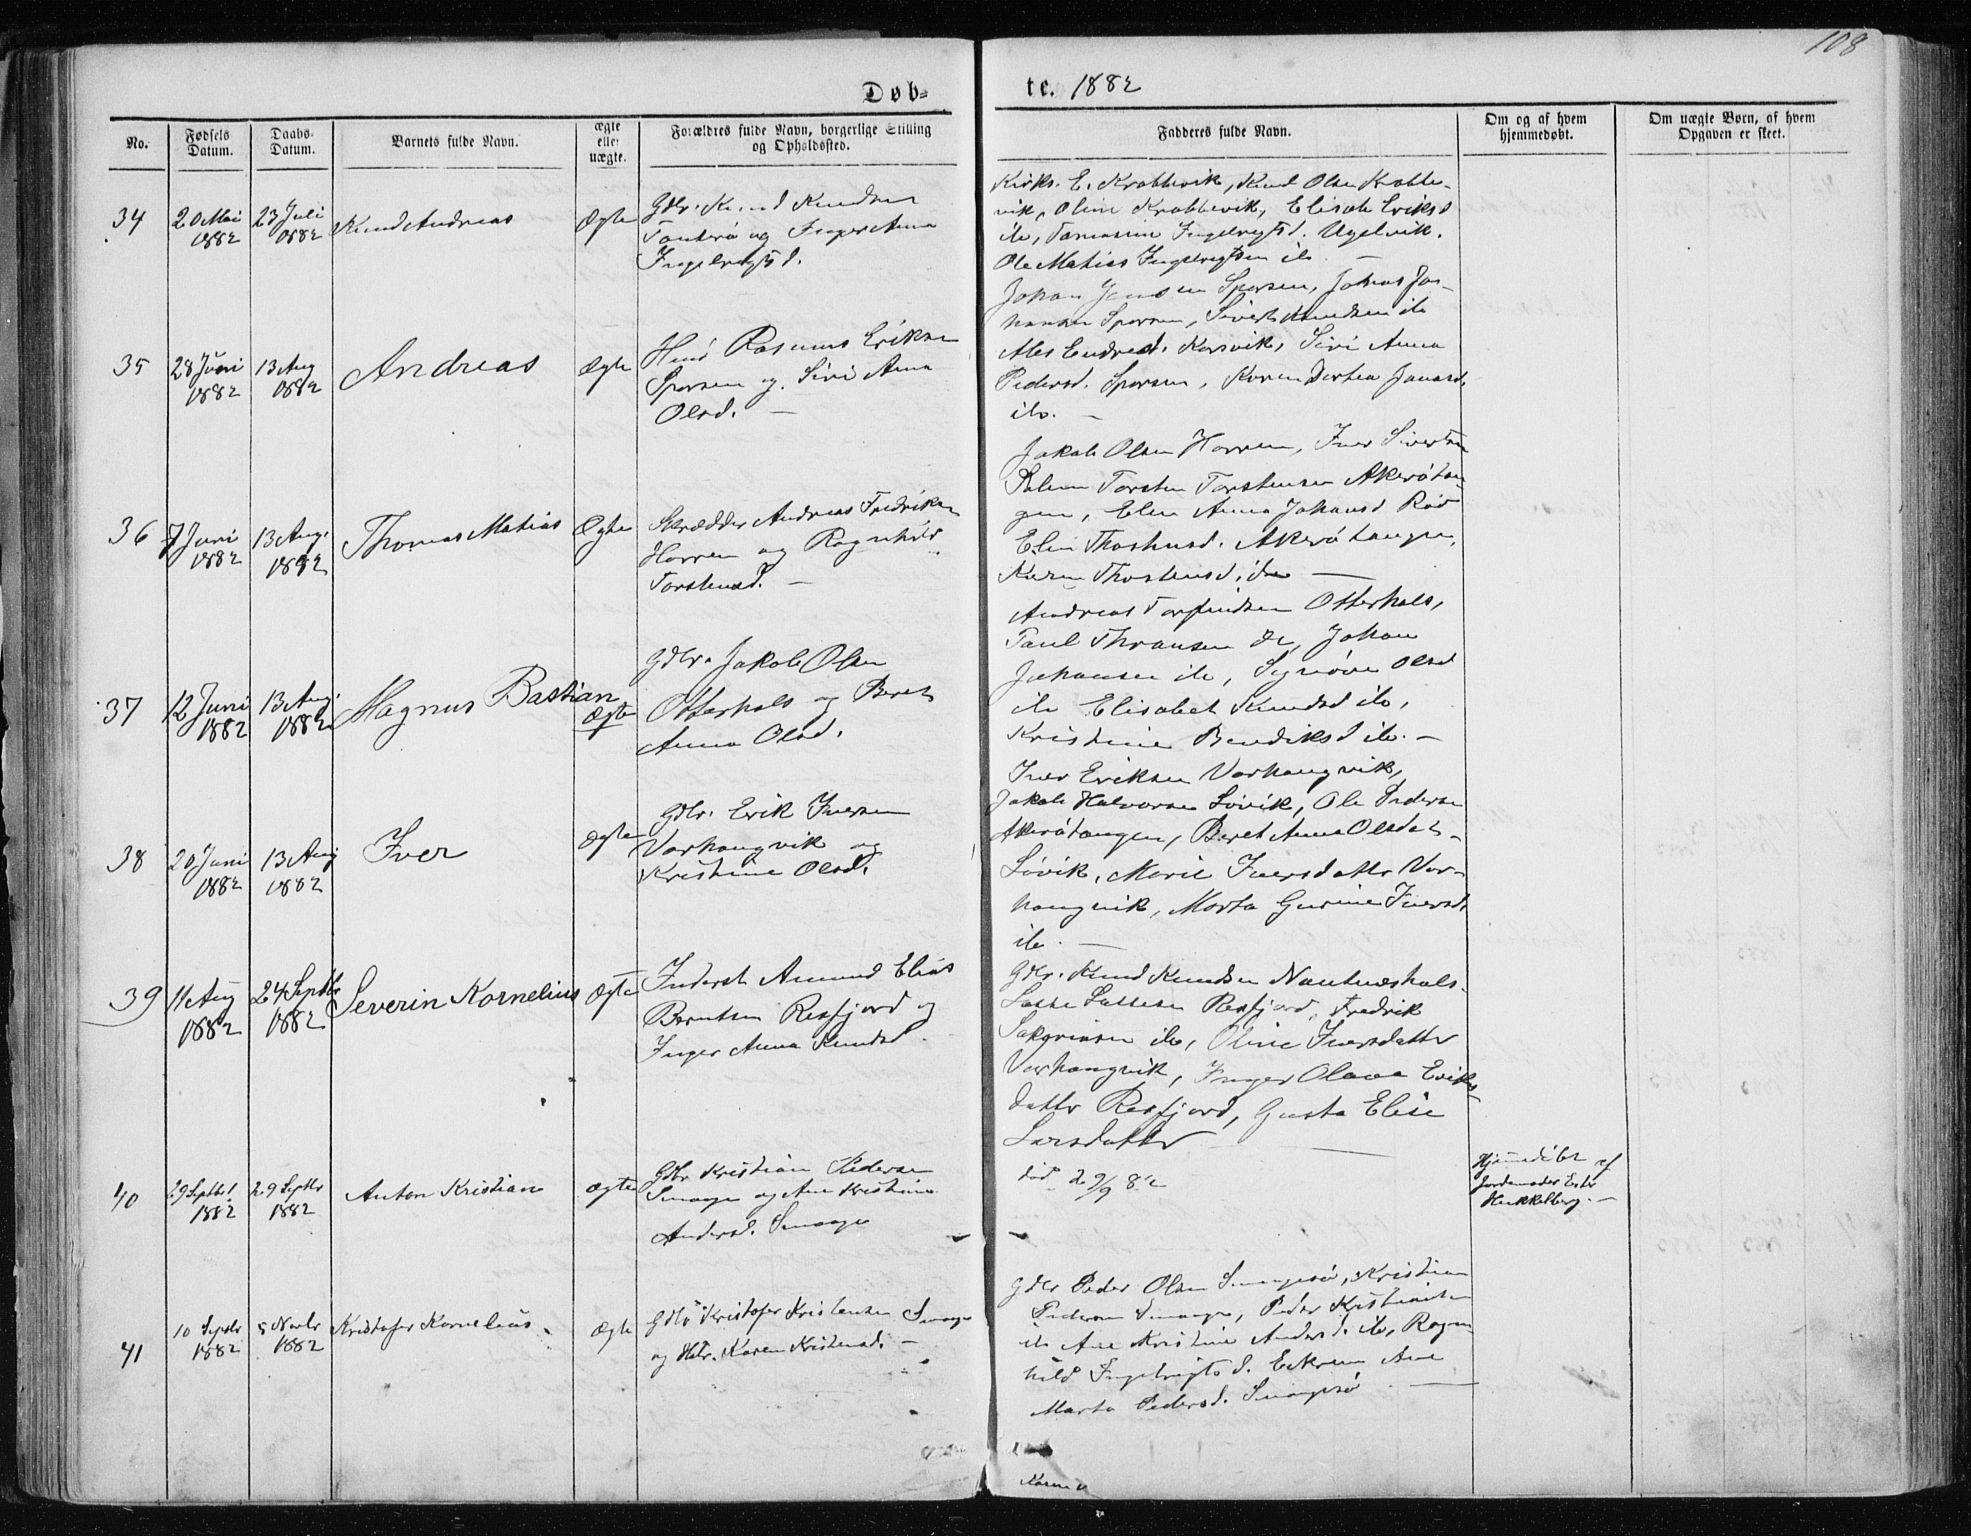 108
Døb-
te. 1882
No.
Fødsels Datum.
Daabs- Datum.
Barnets fulde Navn.
ægte eller uægte.
Forældres fulde Navn, borgerlige Stilling og Opholdssted.
Fadderes fulde Navn.
Om og af hvem hjemmedøbt.
Om uægte Børn, af hvem Opgaven er skeet.
34
20 Mai 1882
23 Juli 1882
Knud Andreas
Ægte
Gdbr. Knud Knudsen
og Inger Anna
Ingebrigtsd.
Kirks. E. Krabbevik, Knud Olsen Krabbe-
vik, Oline Krabbevik, Elisab Eriksd
do, Ingebrigtsd. Ugelvik.
Ole Matias Ingebrigtsen do. —
35
28 Juni 1882
13 Aug 1882
Andreas
Ægte
Rasmus Eriksen
Sporsem og Siri Anna
Olsd. —
Johan Sporsem, Johan Jo-
hansen Sporsem, Sivert Knudsen do
Endresd. Korsvik, Siri Anna
Pedersd. Sporsem, Karen Dortea
do. —
36
7 Juni 1882
13 Aug. 1882
Thomas Matias
Ægte
Skrædder Andreas Fredriksen
Harrem og Ragnhild
Torstensd. —
Jakob Olsen Harrem, Iver Sivertsen
Torsten Torstensen Akerøtan-
gen, Elen Anna Johansd Rød
Elen Akerøtangen,
Karen Thorstensd, do —
37
12 Juni 1882
13 Aug. 1882
Magnus Bastian
Ægte
Gdbr. Jakob Olsen
Otterhals og Beret
Anna Olsd.
Andreas Torfindsen Otterhals,
Paul do, Johan
Johansen do, Synnøve Olsd
do Elisabet Knudsd do,
Kristine Bendiksd do. —
38
20 Juni 1882
13 Aug 1882
Iver
Ægte
Gdbr. Erik Iversen
Varhaugvik og
Kristine Olsd.
Iver Eriksen Varhaugvik,
Jakob Halvorsen Løvik, Ole Pedersen
Akerøtangen, Beret Anna Olsdat-
Løvik, Marie Iversdatter Var-
haugvik, Marta Gurine Iversd.
do. —
39
11 Aug 1882
24 Septbr 1882
Severin Kornelius
Ægte
Inderst Amund Elias
Berntsen Rexfjord og
Inger Anna Knudsd.
Gdbr. Knud Knudsen
Rexfjord, Fredrik
do, Oline Iversdatter
Varhaugvik, Inger Olava Eriks-
datter Rexfjord, Gusta Elise
Larsdatter —
40
29 Septbr 1882
29 Septbr 1882
Anton Kristian
Ægte
Gdbr Kristian Pedersen
Smaage og Ane Kristine
Andersd. Smaage
død 29/9 82
Hjemmedøbt af
Jordemoder
Hukkelberg. —
41
10 Septbr 1882
5 Novbr 1882
Kristofer Kornelius
Ægte
Gdbr Kristofer Kristensen Smaage
og Karen Kristensd. —
Gdbr Peder Olsen Smaagesø, Kristian
Pedersen Smaage, Peder Kristensen
do Ane Kristine Andersd. do, Ragn-
hild Ingebrigtsd. Eikrem Ane
Marta Pedersd. Smaagesø —
Karen